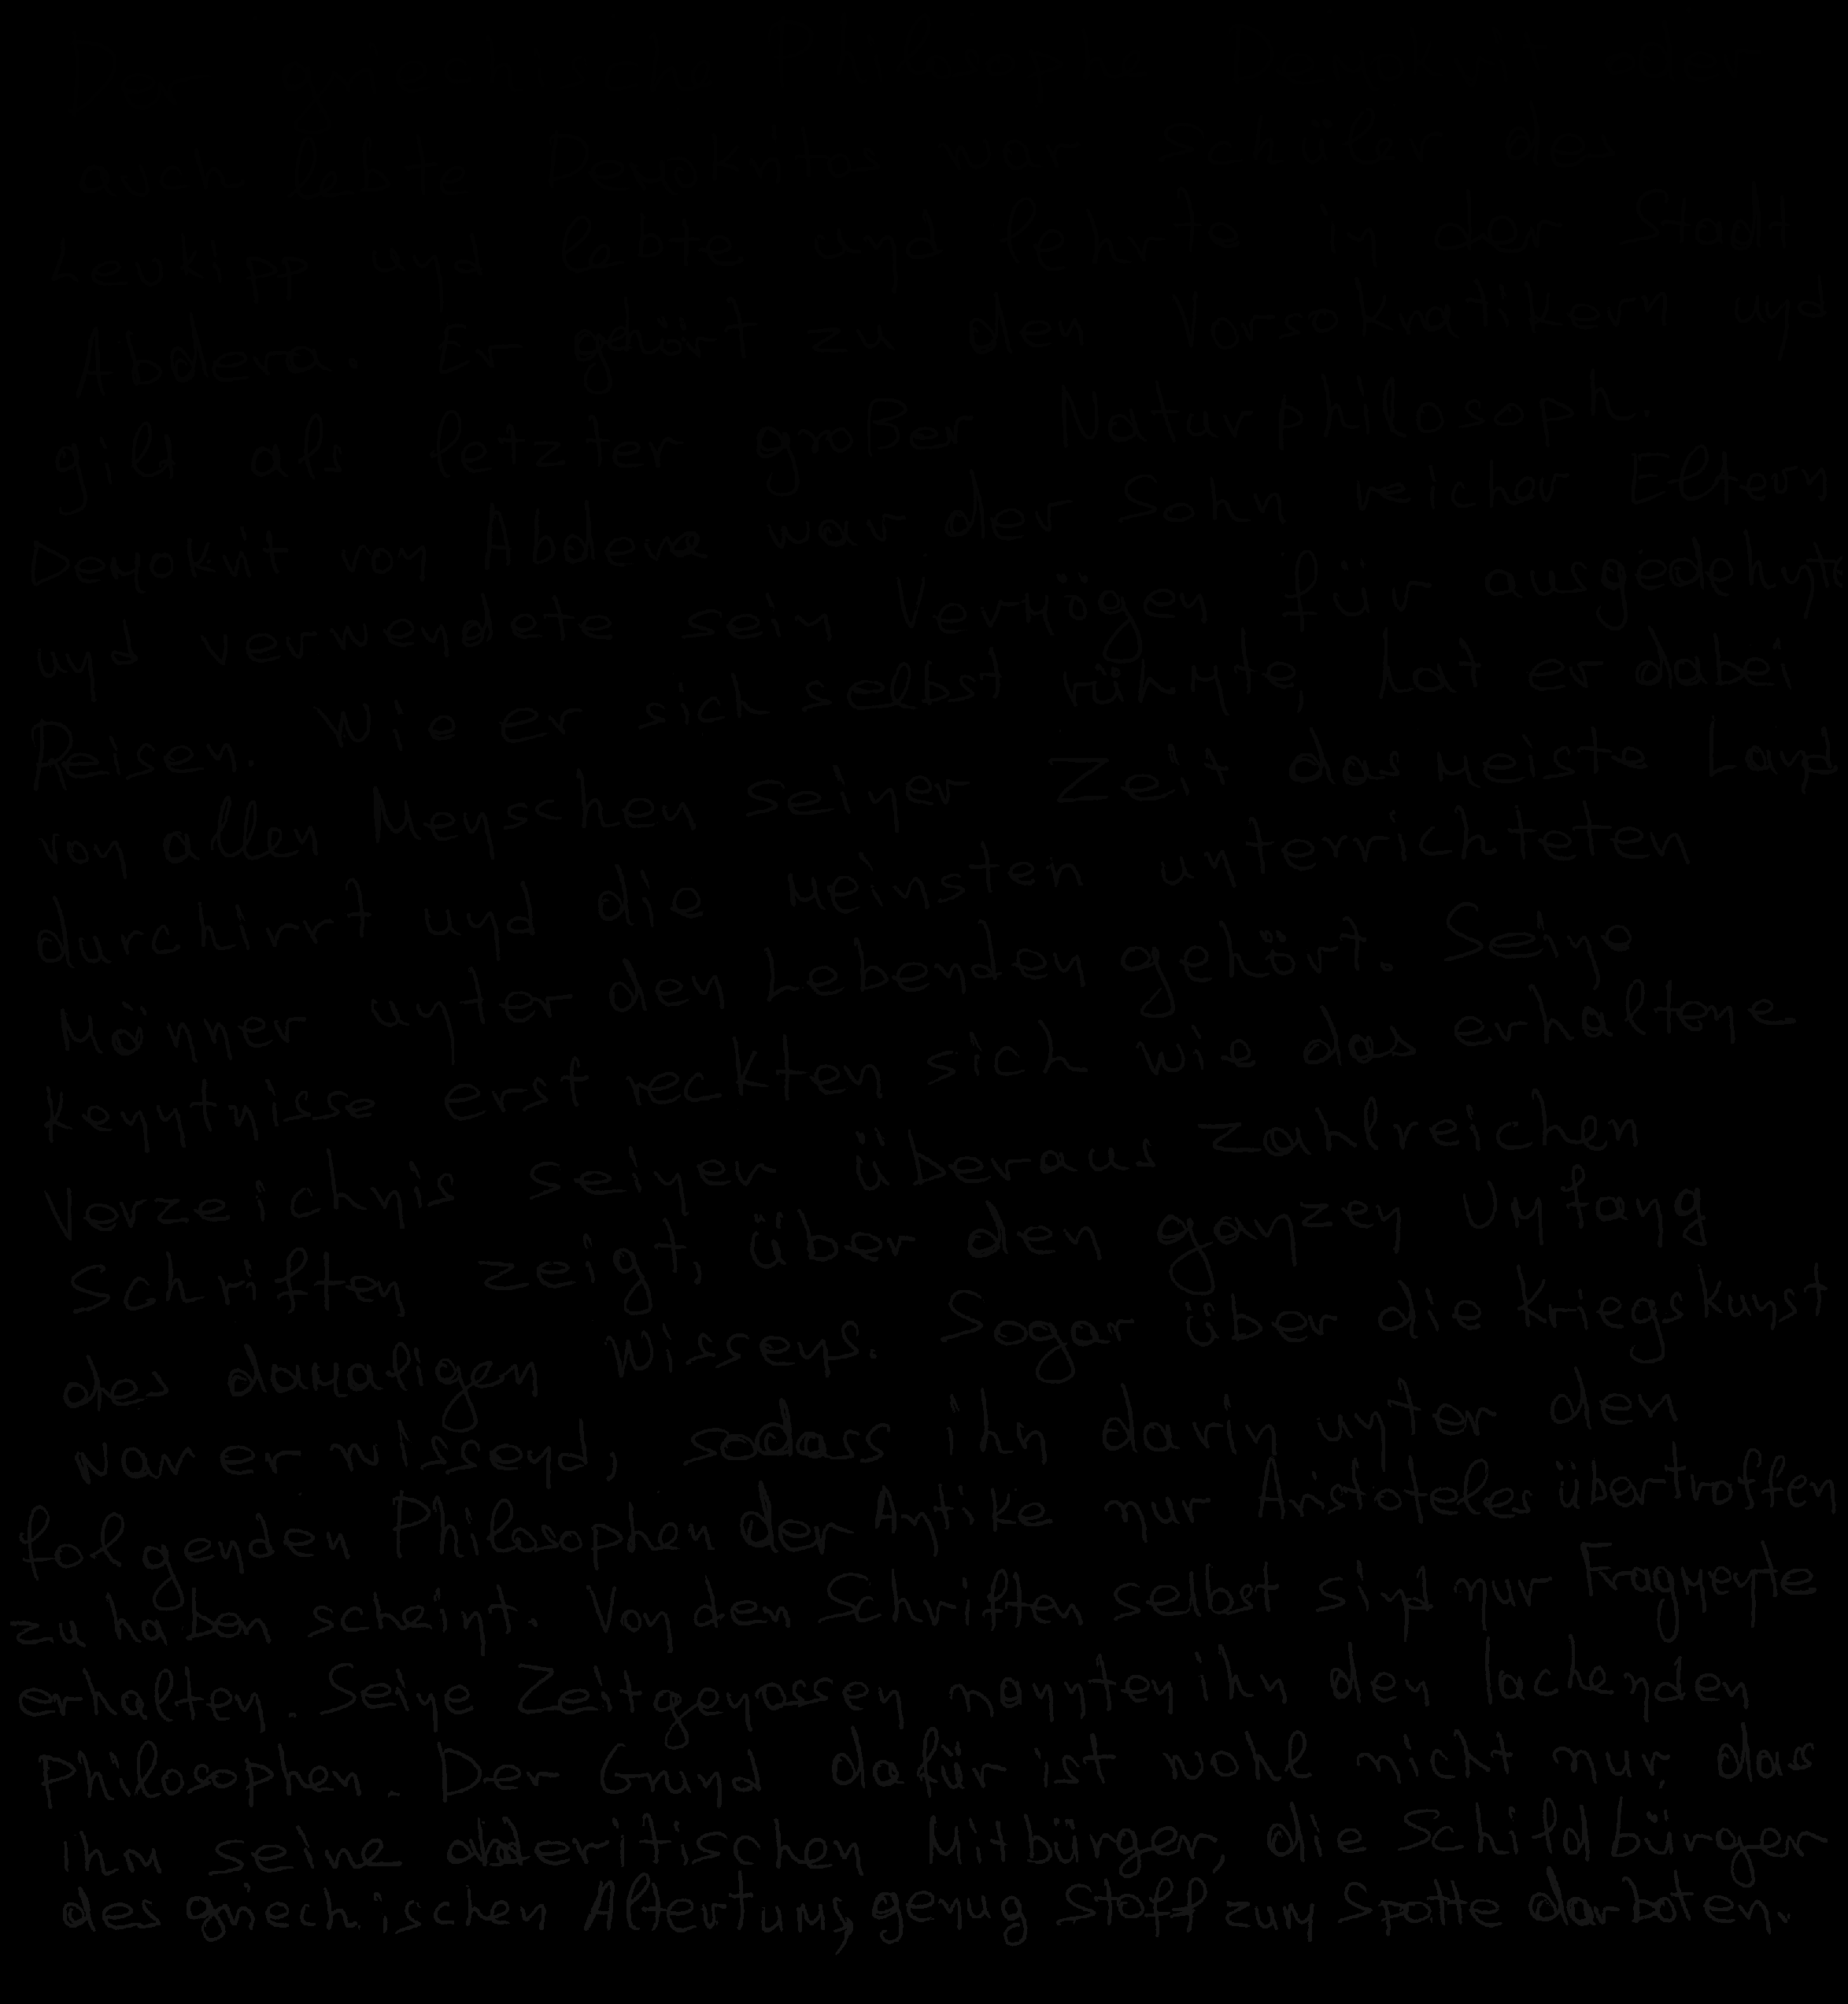 Philosoph Demokrit oder
auch lebte Demokritos war Schüler des
Leukipp und lebte und lehrte in der Stadt
Abdera. Er gehört zu den Vorsokratikern und
gilt als letzter großer Naturphilosoph.
Demokrit von Abdera war der Sohn reicher Eltern
und verwendete sein Vermögen für ausgedehnte
Reisen. Wie er sich selbst rühmte, hat er dabei
von allen Menschen seiner Zeit das meiste Land
durchirrt und die meinsten unterrichteten
Männer unter den Lebenden gehört. Seine
Kenntnisse erst reckten sich wie das erhaltene
Verzeichnis seiner überaus zahlreichen
Schriften zeigt, über den ganzen Umfang
des damaligen Wissens. Sogar über die Kriegskunst
war er wissend, sodass ihn darin unter den
folgenden Philosophen der Antike nur Aristoteles übertroffen
zu haben scheint. Von den Schriften selbst sind nur Fragmente
erhalten. Seine Zeitgenossen nannten ihn den lachenden
Philosophen. Der Grund dafür ist wohl nicht nur, das
ihm seine abderitischen Mitbürger, die Schildbürger
des griechischen Altertums, genug Stoff zum Spotte darboten.